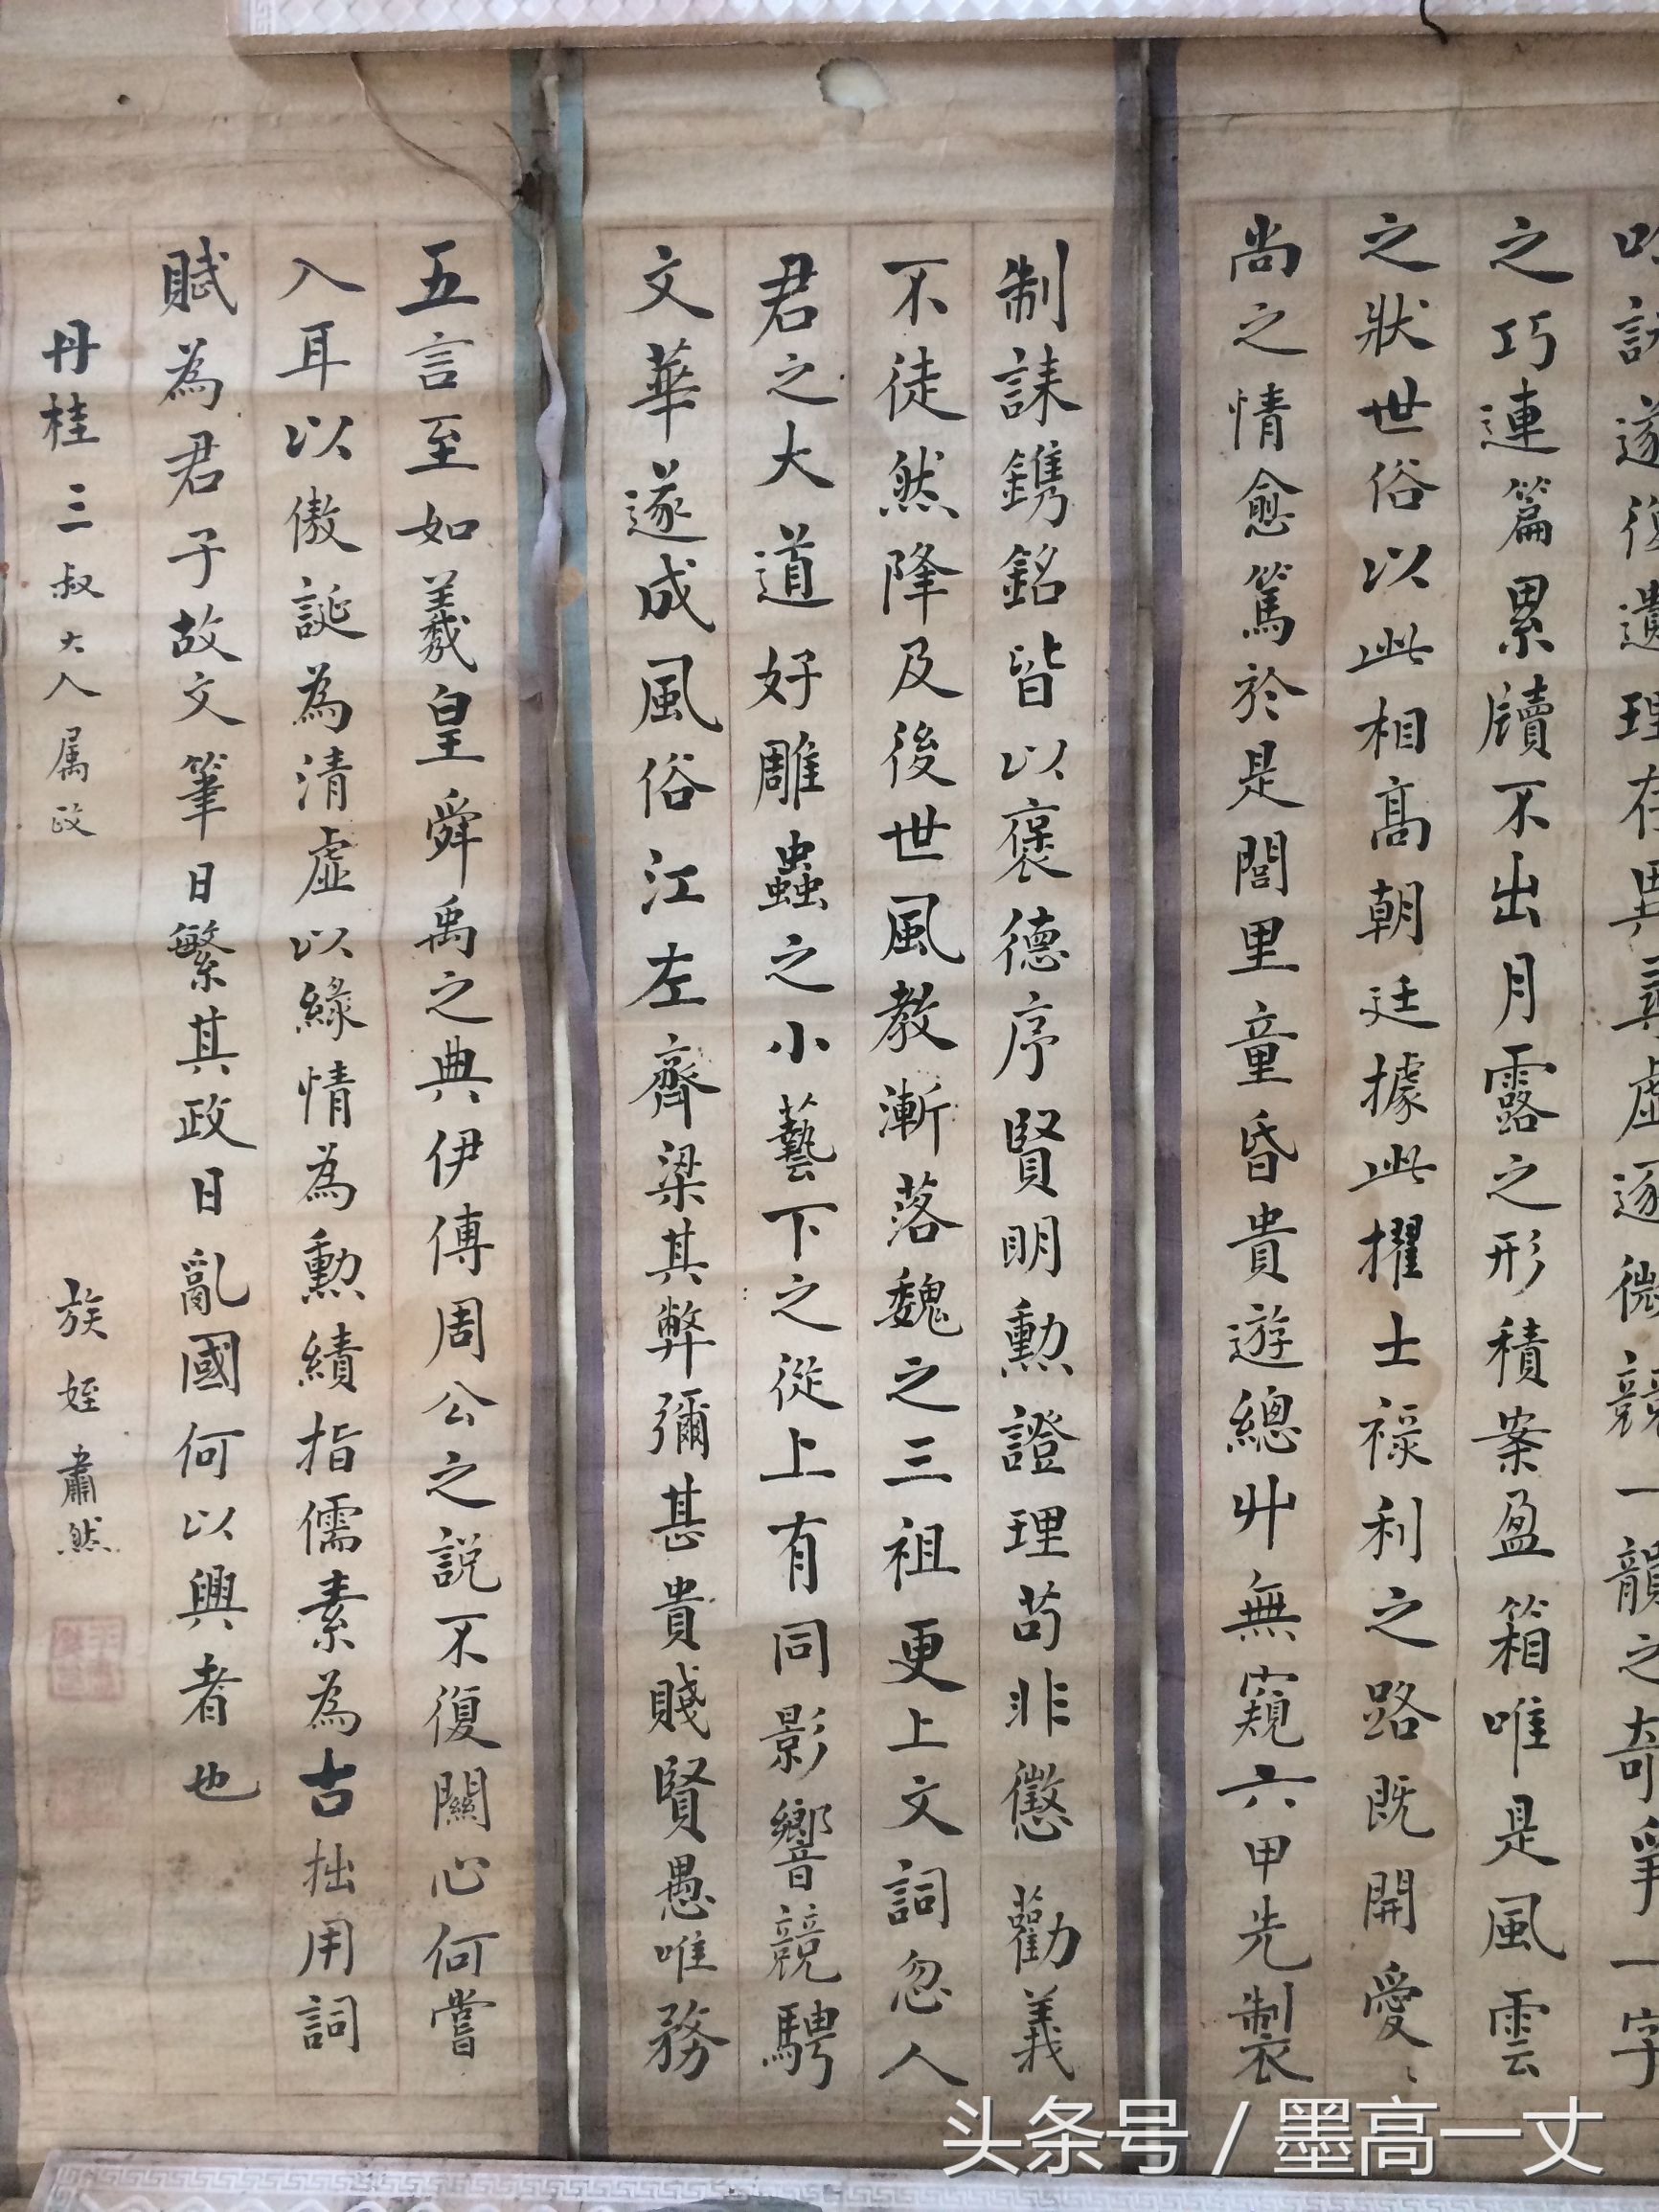 吟詠遂復遺理存異尋虛逐微競一韻之奇爭一字
之巧連篇累牘不出月露之形積案盈箱唯是風雲
之狀世俗以此相高朝廷據此擢士祿利之路既開愛
尚之情愈篤於是閭里童昏貴遊總丱無窺六甲先製
制誄鐫銘皆以褒德序賢明勳證理苟非懲勸義
不徒然降及後世風教漸落魏之三祖更上文詞忽人
君之大道好雕蟲之小藝下之從上有同影響競騁
文華遂成風俗江左齊梁其弊彌甚貴賤賢愚唯務
五言至如羲皇舜禹之典伊傅周公之說不復關心何嘗
入耳以傲誕為清虛以緣情為勳績指儒素為古拙用詞
賦為君子故文筆日繁其政日亂國何以興者也
丹桂三叔大人属政
族姪肅然
头条号 / 墨高一丈